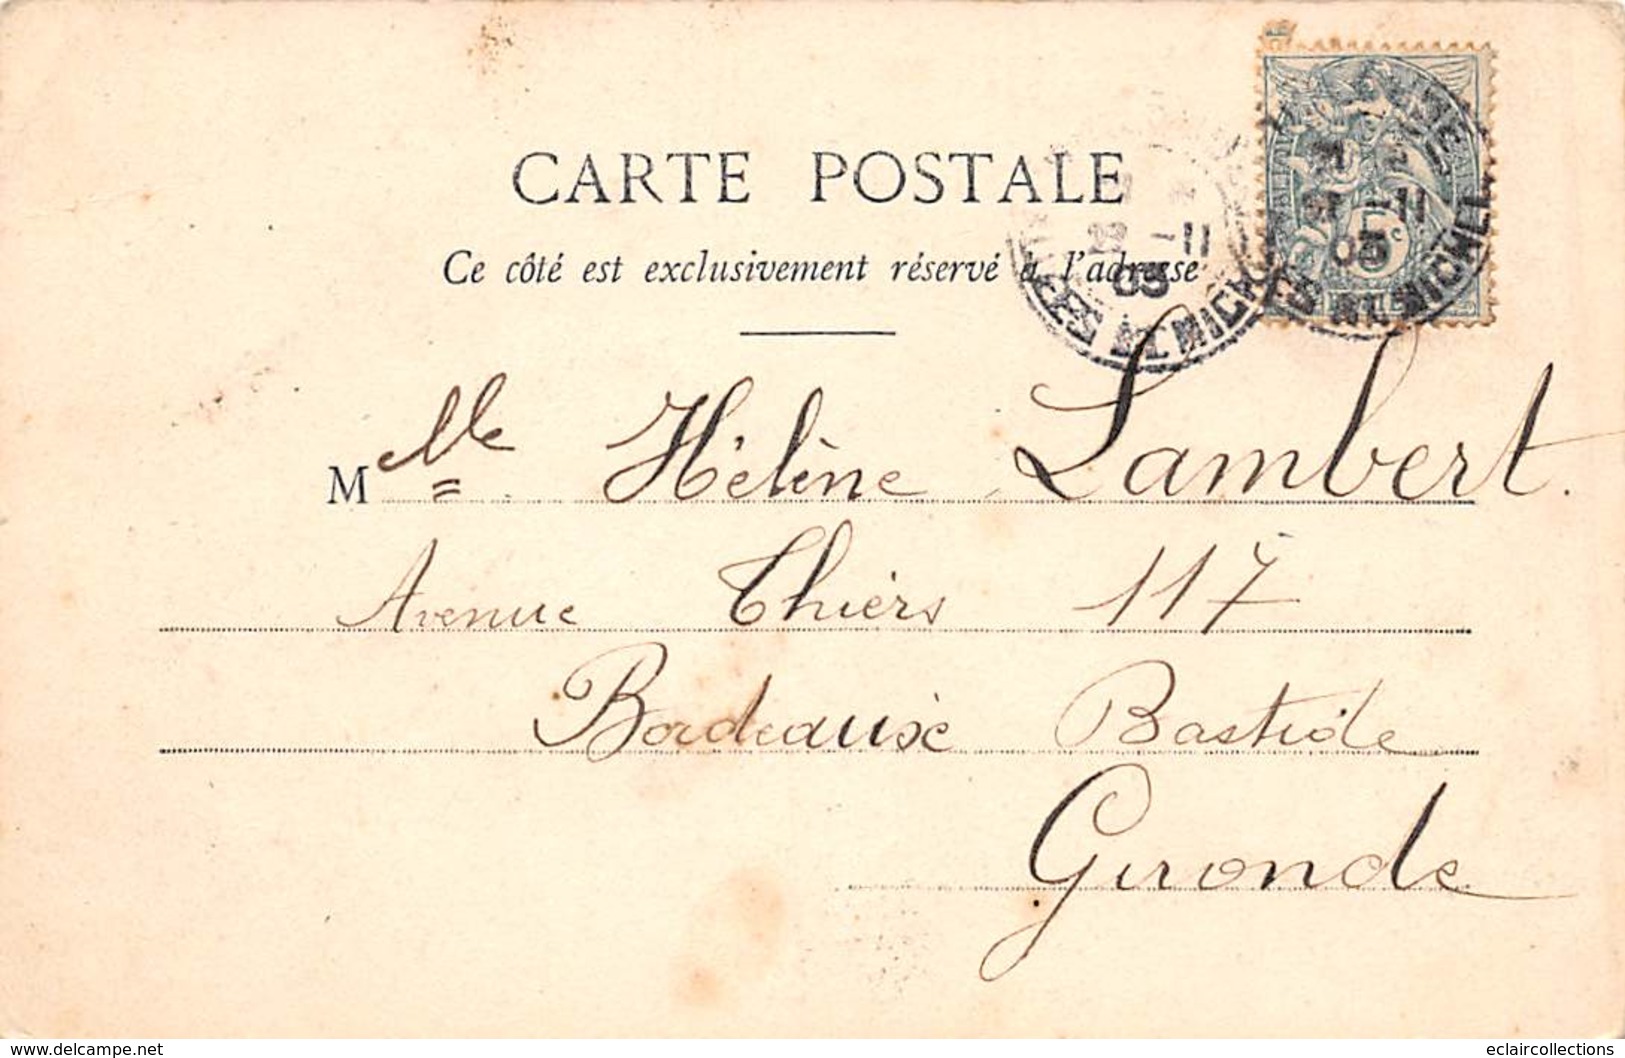 CARTE POSTALE
Ce côté est exclusivement réservé à l'adresse
-11
03
-11
03
5c
Mlle Hélène Lambert.
Avenue Thiers 117
Bordeaux Bastide
Gironde
www.delcampe.net
eclaircollections